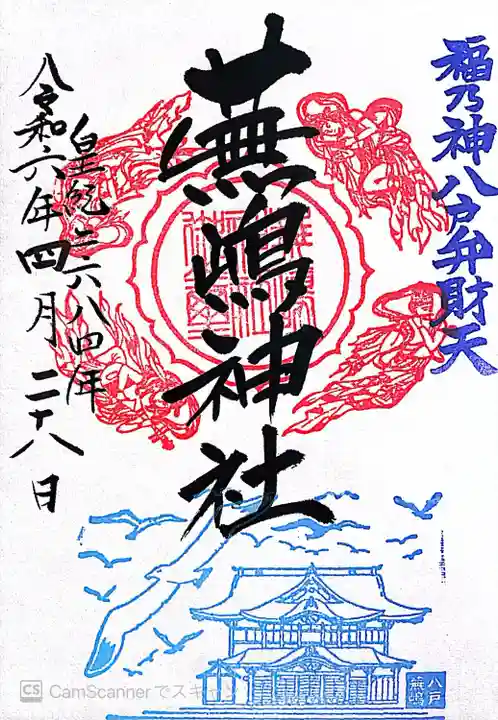 福乃神八戸弁財天
蕪嶋神社
皇紀二六八四年
八 令和六年四月二十八日
八戸
蕪嶋
CS CamScannerでスキャン